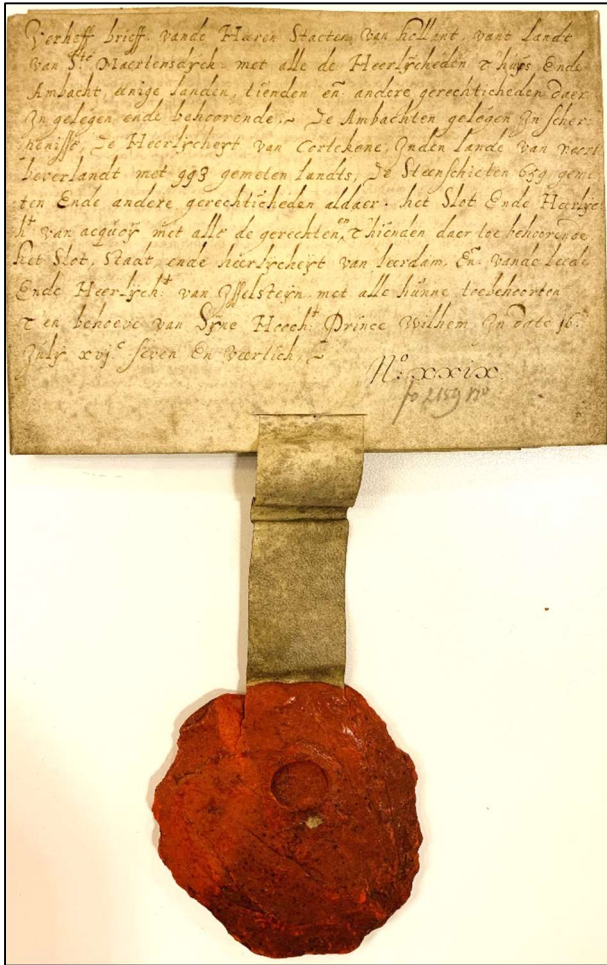 Verheff brieff vande Heeren Staeten van hollant, vant landt
van Ste Maertensdijck met alle de Heerlijcheden t huijs Ende
Ambacht, einige landen, tienden en andere gerechticheden daer
In gelegen ende behoorende, De Ambachten gelegen In scher
henisse, De Heerlijcheijt van Cortekene, Inden lande van noort
beverlandt met 993 gemeten landts, De Steenschieten 659 geme
ten Ende andere gerechticheden aldaer. het Slot Ende Heerlijc
ht van acquoij met alle de gerechten, thienden daer toe behoorende
het Slot, Staat, ende heerlijcheijt van leerdam, En vande leede
Ende Heerlijcht van Ijsselsteijn met alle hunne toebehoorten
T en behoeve van Sijne Hoocht Prince Wilhem In date 16e
Julij xvjc seven En veertich
No xxix.
fo 2159 vo